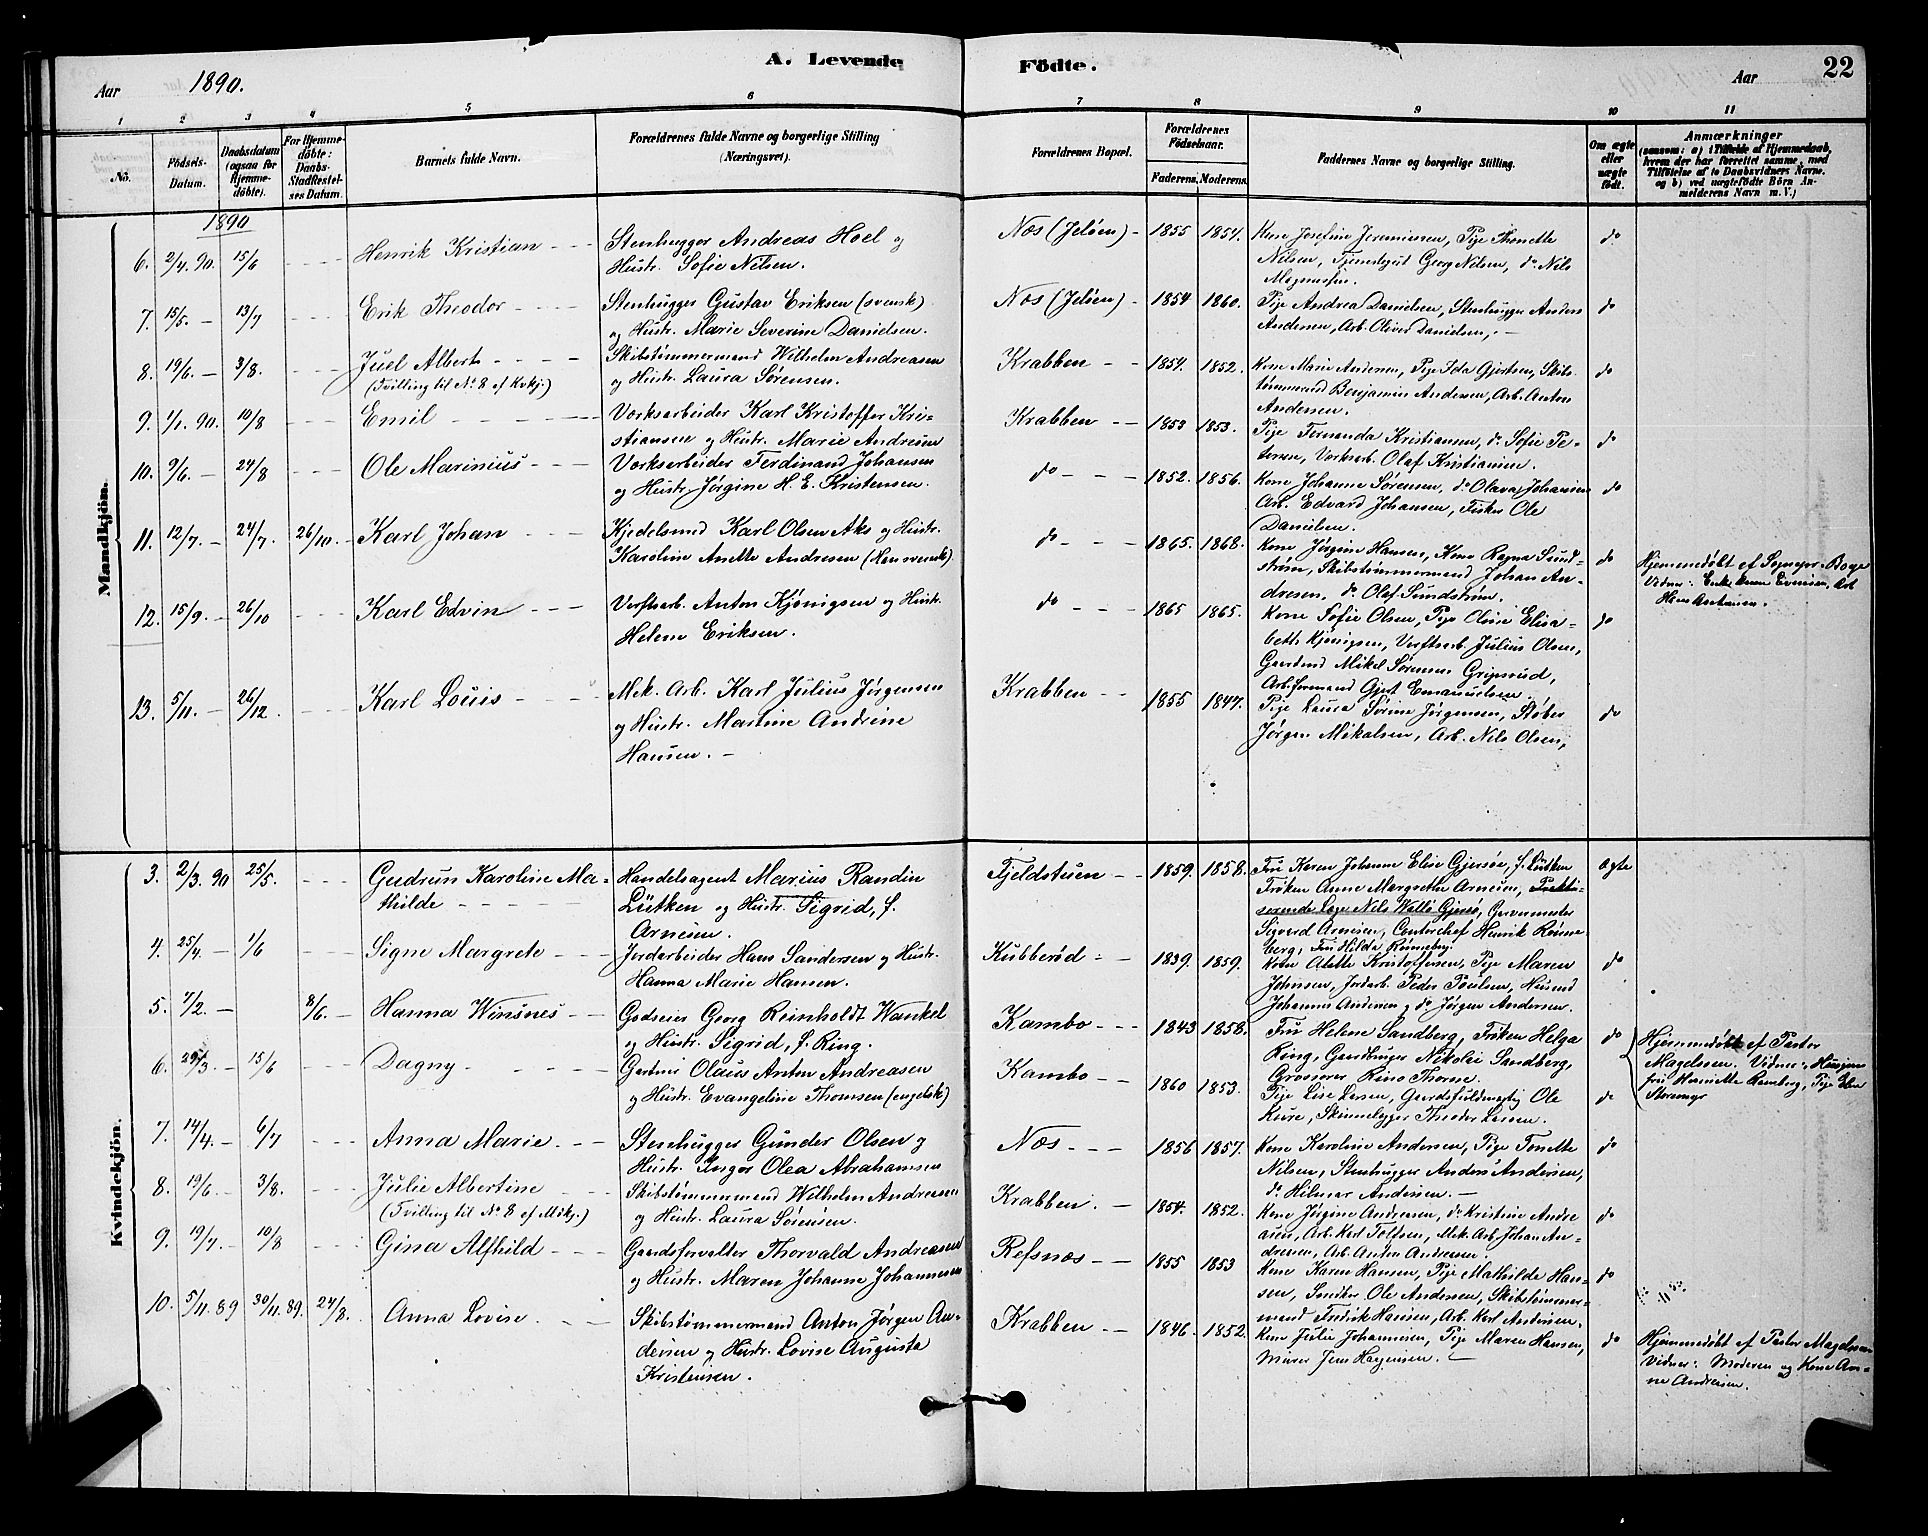 A. Levende Födte.
22
Aar 1890.
Aar
1 2 3 4 5 6 7 8 9 10 11
No.
Födsels-Datum.
Daabsdatum (ogsaa for Hjemme-döbte).
For Hjemme-döbte: Daabs-Stadfæstel-ses Datum.
Barnets fulde Navn.
Forældrenes fulde Navne og borgerlige Stilling (Næringsvei).
Forældrenes Bopæl.
Forældrenes Födselsaar.
Faderens. Moderens.
Faddernes Navne og borgerlige Stilling.
Om ægte eller uægte födt.
Anmærkninger
(saasom: a) i Tilfælde af Hjemmedaab, hvem der har forrettet samme, med Tilföielse af to Daabsvidners Navne, og b) ved uægtefödte Börn An-melderens Navn m. V.)
Mandkjön.
1890
6. 2/4 90. 15/6 Henrik Kristian
Stenhugger Andreas Hoel og
Hustr. Sofie Nilsen.
Næs (Jeløen) 1855 1854.
Kone Josefine Jeremiassen, Pige Thonette
Nilsen, Tjenestegut Georg Nilsen, do Nils
Magnussen. do
7. 15/5 13/7 Erik Theodor
Stenhugger Gustav Eriksen (svensk)
og Hustr. Marie Severine Danielsen.
Næs (Jeløen) 1854 1860.
Pige Andrea Danielsen, Stenhugger Anders
Andersen, Arb. Oliver Danielsen, do
8. 19/6 3/8. Juel Albert
(Tvilling til No 8 af Kvkj.)
Skibstømmermand Wilhelm Andreasen
og Hustr. Laura Sørensen.
Krabben 1854. 1852.
Kone Marie Andersen, Pige Ida Gjertsen, Skibs-
tømmermand Benjamin Andersen, Arb. Anton
Andersen. do
9. 1/1. 90. 10/8 Emil
Værksarbeider Karl Kristoffer Kri-
stiansen og Hustr. Marie Andresen
Krabben 1853 1853.
Pige Fernanda Kristiansen, do Sofie Pe-
tersen, Værksarb. Olaf Kristiansen. do
10. 9/6. 24/8 Ole Marinius
Værksarbeider Ferdinand Johansen
og Hustr. Jørgine H. E. Kristensen.
do 1852. 1856.
Kone Johanne Sørensen, do Olava Johansen
Arb. Edvard Johansen, Fisker Ole
Danielsen. do
11. 12/7. 24/7 26/10. Karl Johan
Kjedelsmed Karl Olsen Aks og Hustr.
Karoline Anette Andresen (Han svensk).
do 1865. 1868.
Kone Jørgine Hansen, Kone Ragna Sund-
strøm, Skibstømmermand Johan An-
dresen, do Olaf Sundstrøm. do
Hjemmedøbt af Sogneprt. Boye
Vidner: Enke Evensen, Arb
12. 15/9. 26/10 Karl Edvin
Verftsarb. Anton Kjønigsen og Hustr.
Helene Eriksen.
do 1865 1865.
Kone Sofie Olsen, Pige Oline Elisa-
beth Kjønigsen, Verftsarb. Julius Olsen,
Gaardmd Mikel Sørensen Gripsrud,
Arb.formand Gjert Emanuelsen. do
13. 5/11. 26/12. Karl Louis
Mek. Arb. Karl Julius Jørgensen
og Hustr. Martine Andrine
Hansen.
Krabben 1855 1847.
Pige Laura Sørine Jørgensen, Støber
Jørgen Mikalsen, Arb. Nils Olsen, do
Kvindekjön.
3. 2/3. 90 25/5. Gudrun Karoline Ma-
thilde
Handelsagent Marius Randin
Lütken og Hustr. Sigrid, f.
Arnesen.
Fjeldstuen 1859. 1858.
Fru Karen Johanne Elise Gjersøe, f. Lütken
Frøken Anne Margrethe Arnesen, Prakti-
serende Læge Nils Gjersø, Garvermester
Sigvard Arnesen, Contorchef Henrik Rønne-
berg, Fru Hilda Rønneberg. Ægte
4. 25/4. 1/6 Signe Margrete
Jordarbeider Hans Sandersen og Hustr.
Hanna Marie Hansen.
Kubberød 1839. 1859.
Kone Alette Kristoffersen, Pige Maren
Johnsen, Jordarb. Peder Poulsen, Husmd
Johannes Andersen og do Jørgen Andersen. do
5. 7/2. 8/6. Hanna Winsnes
Godseier Georg Reinholdt Wankel
og Hustr. Sigrid, f. Ring.
Kambo 1843 1858.
Fru Helene Sandberg, Frøken Helga
Ring, Gaardbruger Nikolai Sandberg,
Grosserer Rino Thorne. do
Hjemmedøbt af Pastor
Magelssen. Vidner: Husjom-
fru Hermette Ramberg, Pige Elen
Storemyr
6. 25/3. 15/6 Dagny
Gartner Olaus Anton Andreasen
og Hustr. Evangeline Thomsen (engelsk)
Kambo 1860 1853.
Pige Lise Larsen, Gaardsfuldmegtig Ole
Kure, Skinnelægger Theodor Larsen. do
7. 14/4. 6/7 Anna Marie
Stenhugger Gunder Olsen og
Hustr. Inger Olea Abrahamsen
Næs 1856 1857.
Kone Karoline Andersen, Pige Tonette
Nilsen, Stenhugger Anders Andersen,
do Hilmar Andersen. do
8. 19/6. 3/8. Julie Albertine
(Tvilling til No 8 af Mdkj.)
Skibstømmermand Wilhelm Andreasen
og Hustr. Laura Sørensen.
Krabben. 1854. 1852.
Kone Jørgine Andreasen, do Kristine Andre
asen, Arb. Karl Tolfsen, Mek. Arb. Johan An-
dresen, Arb. Anton Andreasen. do
9. 19/7. 10/8 Gina Alfhild
Gaardsforvalter Thorvald Andreasen
og Hustr. Maren Johanne Johannesen
Refsnæs 1855 1853
Kone Karen Hansen, Pige Mathilde Han-
sen, Smed Ole Andersen, Skibstømmer-
mand Fredrik Hansen, Arb. Karl Andersen. do
10. 5/11 89 30/11. 89. 24/8. Anna Lovise.
Skibstømmermand Anton Jørgen An-
dersen og Hustr. Lovise Augusta
Kristensen.
Krabben 1846. 1852
Kone Julie Johannesen, Pige Maren Hansen,
Murer Jens Hagensen. do
Hjemmedøbt af Pastor Magelssen
Vidner: Moderen og Kone An-
ne Andresen.